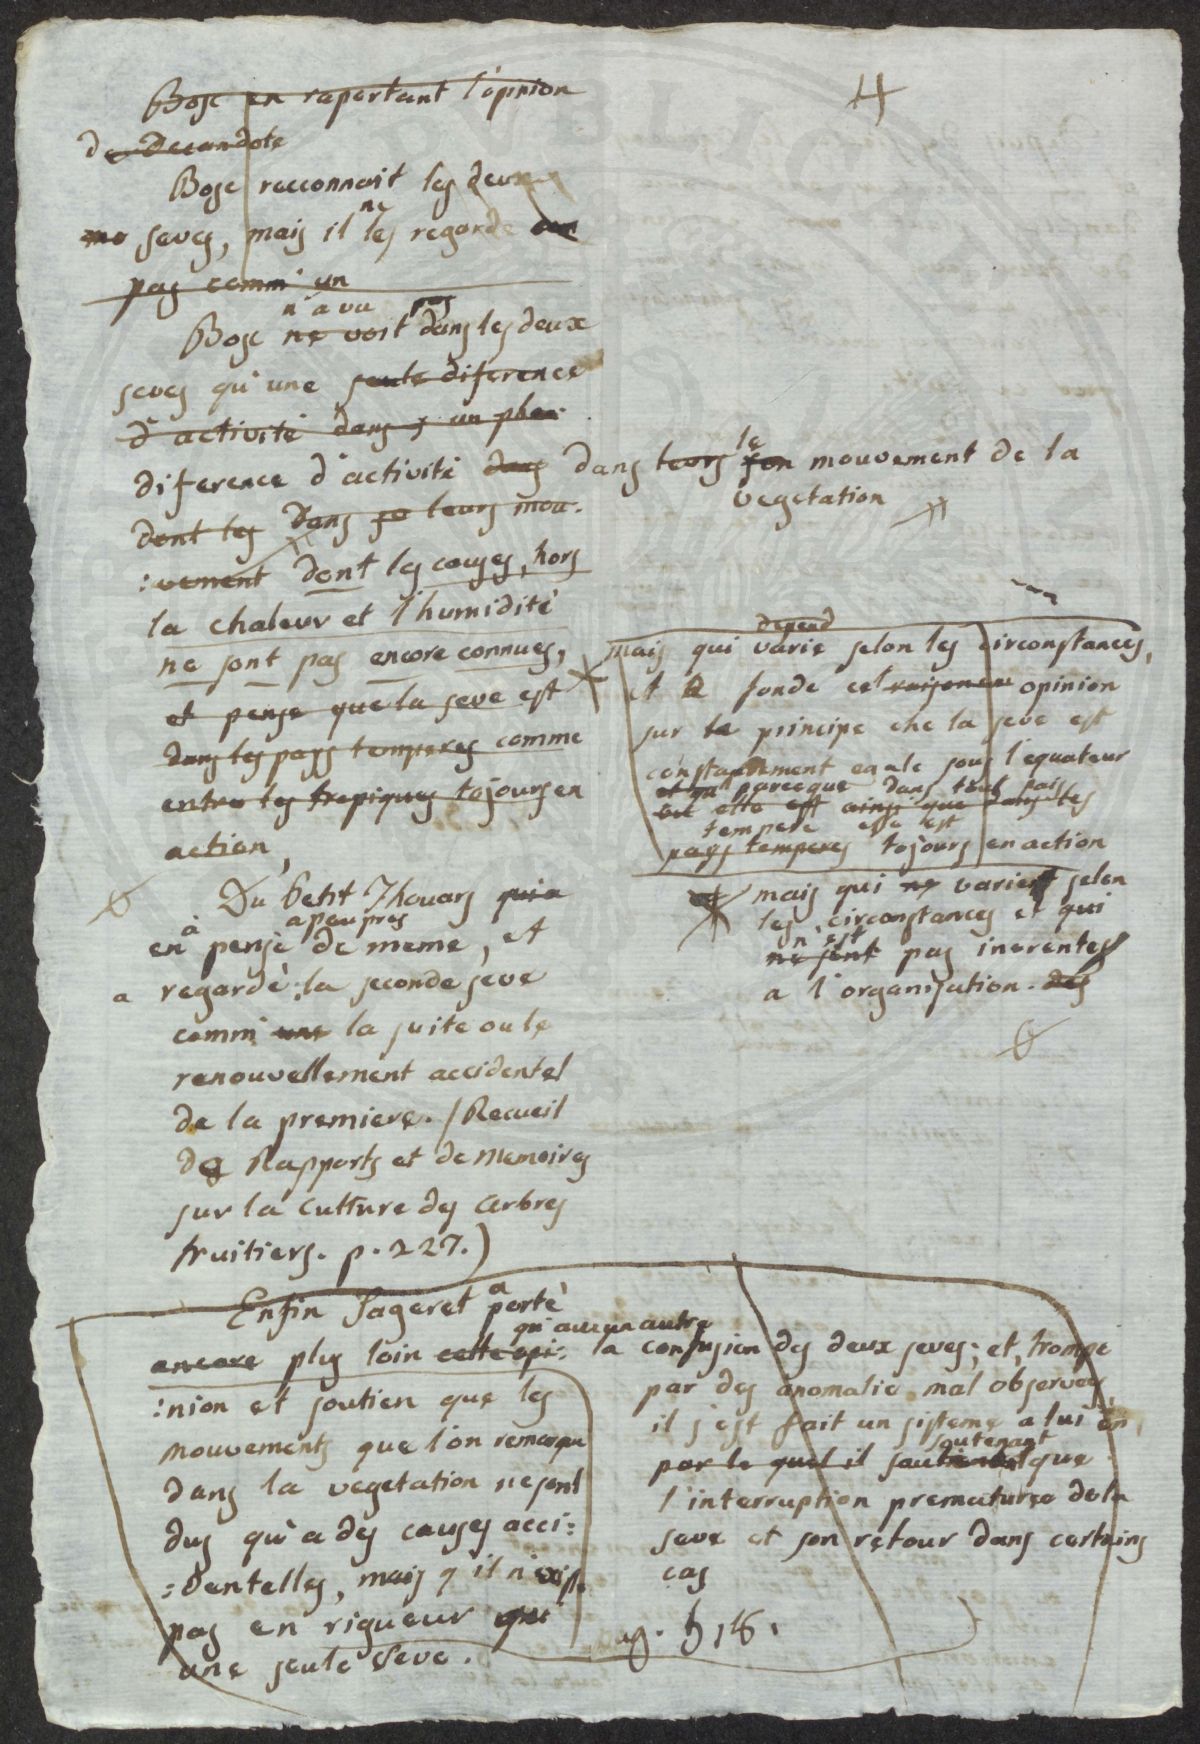 4
Bosc en raportant l'opinion
de Decandole
Bosc reconnoit les deux
seves, mais il ne les regarde
pas comm' un
n'a vu pas
Bosc ne voit dans les deux
seves qu'une seule diference
d'activité dans un plus
diference d'activité dans dans leurs le son mouvement de la
vegetation
dont les dans se leurs mou-
:vement dont les causes, hors
la chaleur et l'humidité
ne sont pas encore connues,
et pense que la seve est
dans les pays temperes comme
entre les tropiques tojours en
action,
Du Petit Thouars qui a
en a pensé a peu pres de meme, et
a regardé la seconde seve
comm' une la suite ou le
renouvellement accidentel
de la premiere. (Recueil
de Rapports et de Memoires
sur la Culture des Arbres
fruitiers. p. 227.)
depend
mais qui varie selon les circonstances,
et fonde cet opinion
sur le principe che la seve est
constamment egale sous l'equateur
parceque dans tout pais
elle est ainsi que dans les
temperé elle est
pays temperes tojours en action
mais qui ne varient selon
les circonstances et qui
n'est
ne sont pas inerentes
a l'organisation. des
Enfin Sageret a porté
qu'aucun autre
ancore plus loin cette opi: la confusion des deux seves; et, trompé
:nion et soutien que les
mouvements que l'on remarqu
dans la vegetation ne sont
dus qu'a des causes acci:
:dentelles, mais q'il n'exist
pas en rigueur que
une seule seve.
par des anomalie mal observés,
il s'est fait un sisteme a lui en
soutenant
par le quel il soutient que
l'interruption prematurée de la
seve et son retour dans certains
cas